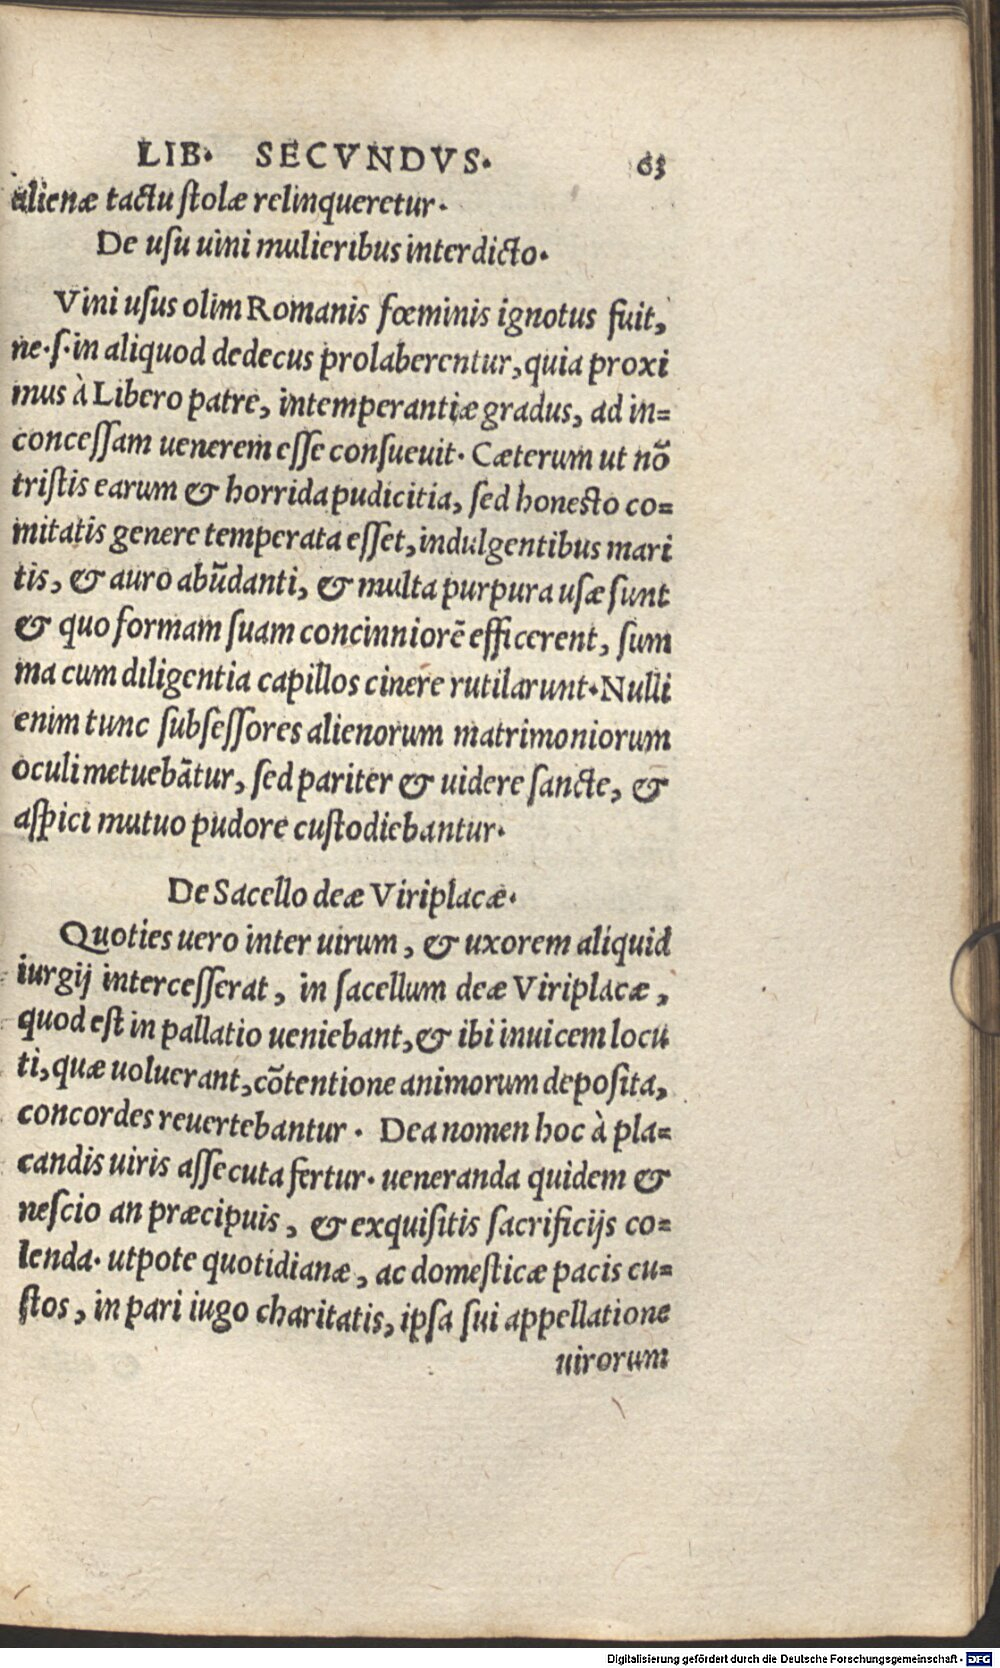 LIB. SECVNDVS. 63
alienæ tactu ſtolæ relinqueretur.
De uſu uini mulieribus interdicto.
Vini uſus olim Romanis fœminis ignotus fuit,
ne.ſ.in aliquod dedecus prolaberentur, quia proxi
mus à Libero patre, intemperantiæ gradus, ad in=
conceſſam uenerem eſſe conſueuit. Cæterum ut nõ
triſtis earum & horrida pudicitia, ſed honeſto co=
mitatis genere temperata eſſet, indulgentibus mari
tis, & auro abũdanti, & multa purpura uſæ ſunt
& quo formam ſuam concinniorẽ efficerent, ſum
ma cum diligentia capillos cinere rutilarunt. Nulli
enim tunc ſubſeſſores alienorum matrimoniorum
oculi metuebãtur, ſed pariter & uidere ſancte, &
aſpici mutuo pudore cuſtodiebantur.
De Sacello deæ Viriplacæ.
Quoties uero inter uirum, & uxorem aliquid
iurgij interceſſerat, in ſacellum deæ Viriplacæ,
quod eſt in pallatio ueniebant, & ibi inuicem locu
ti, quæ uoluerant, cõtentione animorum depoſita,
concordes reuertebantur. Dea nomen hoc à pla=
candis uiris aſſecuta fertur. ueneranda quidem &
neſcio an præcipuis, & exquiſitis ſacrificijs co=
lenda. utpote quotidianæ, ac domeſticæ pacis cu=
ſtos, in pari iugo charitatis, ipſa ſui appellatione
uirorum
Digitalisierung gefördert durch die Deutsche Forschungsgemeinschaft - DFG